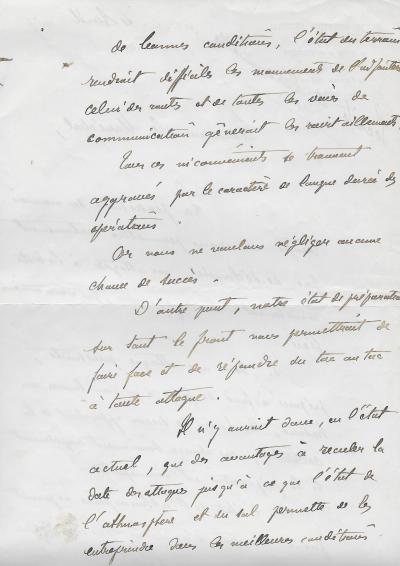 de bonnes conditions, l'état du terrain
rendrait difficiles les mouvements de l'infanterie
celui des routes et de toutes les voies de
communication gênerait les ravitaillements.
Tous ces inconvénients se trouvent
aggravés par le caractère de longue durée des
opérations.
Or nous ne voulons négliger aucune
chance de succès.
D'autre part, notre état de préparation
sur tout le front nous permettrait de
faire face et de répondre du tac au tac
à toute attaque.
Il n'y aurait donc, en l'état
actuel, que des avantages à reculer la
date des attaques jusqu'à ce que l'état de
l'athmosphère et du sol permette de les
entreprendre dans les meilleures conditions